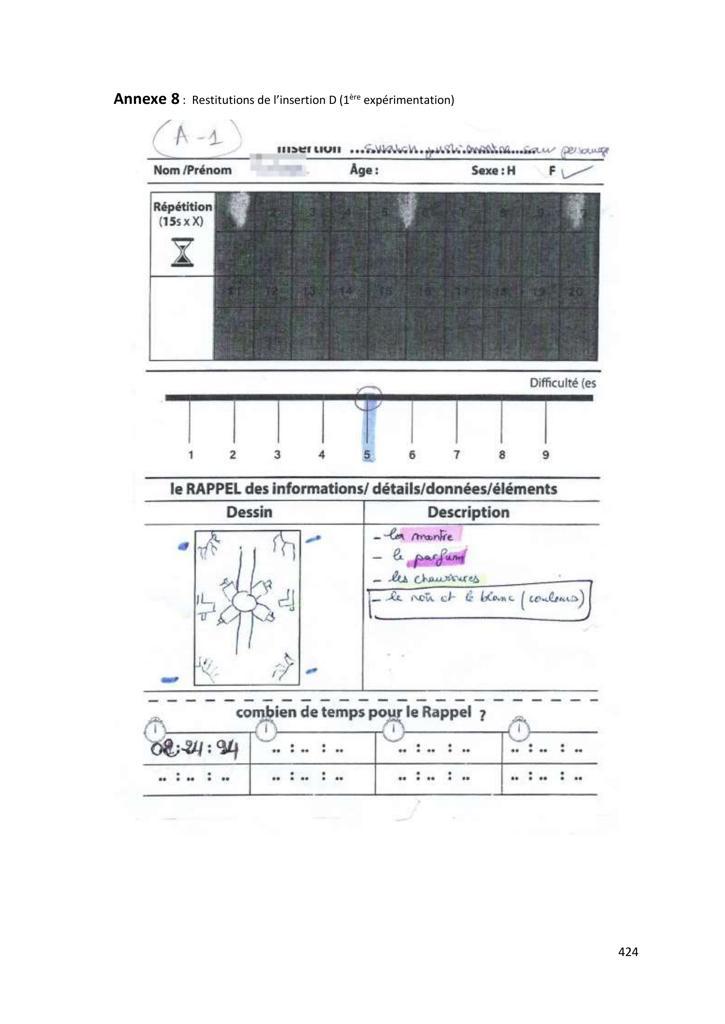 Annexe 8 : Restitutions de l'insertion D (1ère expérimentation)
A-1
Insertion ... swatch
Nom /Prénom Âge : Sexe : H F ✓
Répétition
(15s x X)
2 3 4 5 6 7 8 9
11 12 13 14 15 16 17 18 19 20
Difficulté (es
1 2 3 4 5 6 7 8 9
le RAPPEL des informations/ détails/données/éléments
Dessin Description
- la montre
- le parfum
- les chaussures
- le noir et le blanc (couleurs)
combien de temps pour le Rappel ?
.. : .. : .. .. : .. : .. .. : .. : ..
.. : .. : .. .. : .. : .. .. : .. : .. .. : .. : ..
424